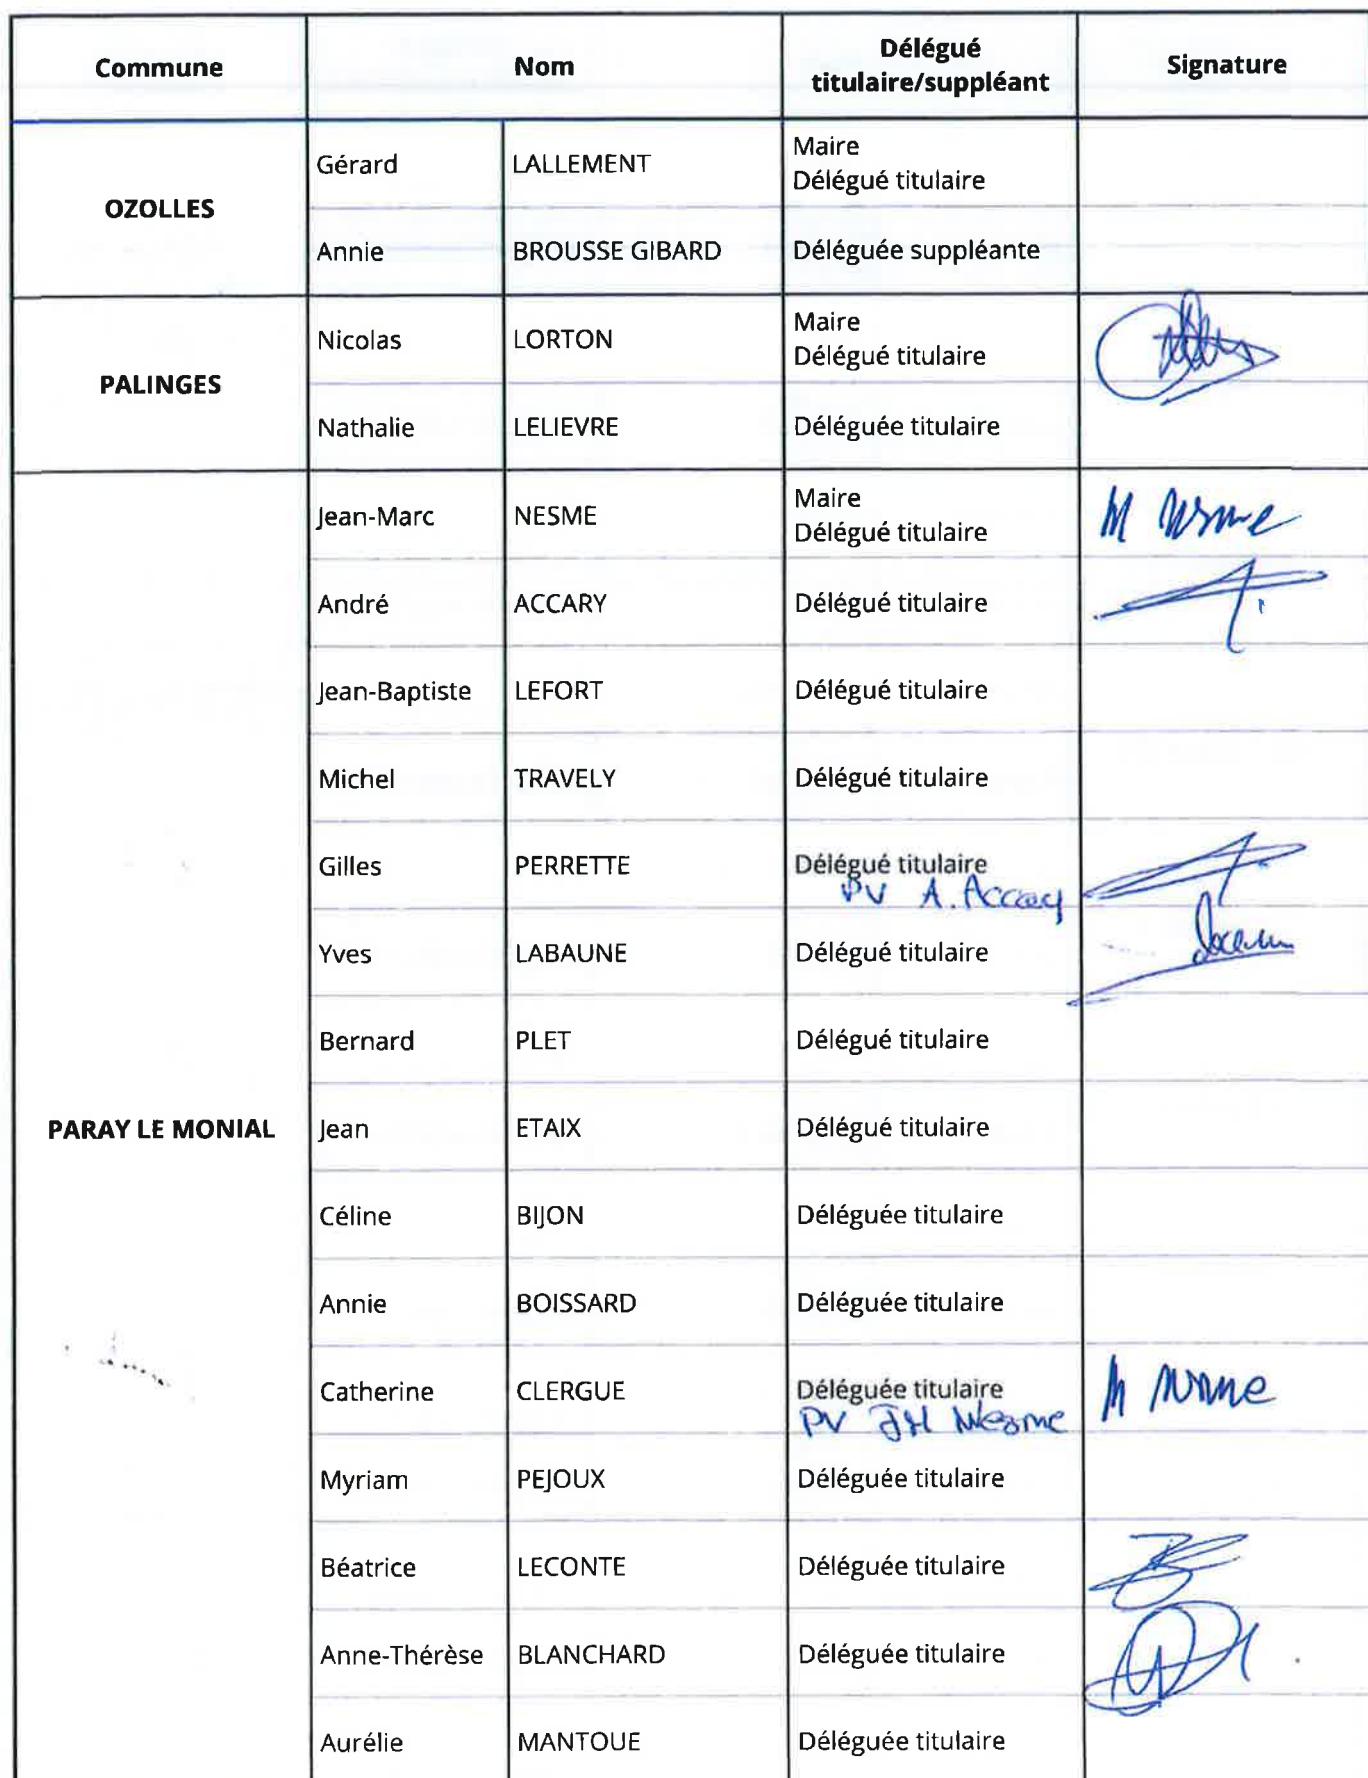 Commune Nom Délégué titulaire/suppléant Signature
OZOLLES
Gérard LALLEMENT Maire
Délégué titulaire
Annie BROUSSE GIBARD Déléguée suppléante
PALINGES
Nicolas LORTON Maire
Délégué titulaire
Nathalie LELIEVRE Déléguée titulaire
PARAY LE MONIAL
Jean-Marc NESME Maire
Délégué titulaire M Nesme
André ACCARY Délégué titulaire
Jean-Baptiste LEFORT Délégué titulaire
Michel TRAVELY Délégué titulaire
Gilles PERRETTE Délégué titulaire
PV A. Accary
Yves LABAUNE Délégué titulaire
Bernard PLET Délégué titulaire
Jean ETAIX Délégué titulaire
Céline BIJON Déléguée titulaire
Annie BOISSARD Déléguée titulaire
Catherine CLERGUE Déléguée titulaire M Nesme
PV JM Nesme
Myriam PEJOUX Déléguée titulaire
Béatrice LECONTE Déléguée titulaire
Anne-Thérèse BLANCHARD Déléguée titulaire
Aurélie MANTOUE Déléguée titulaire